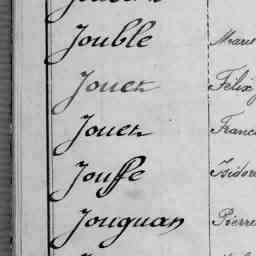 Jouble Marie
Jouen Félix
Jouen Franc
Jouffe Isidore
Jouguan Pierre